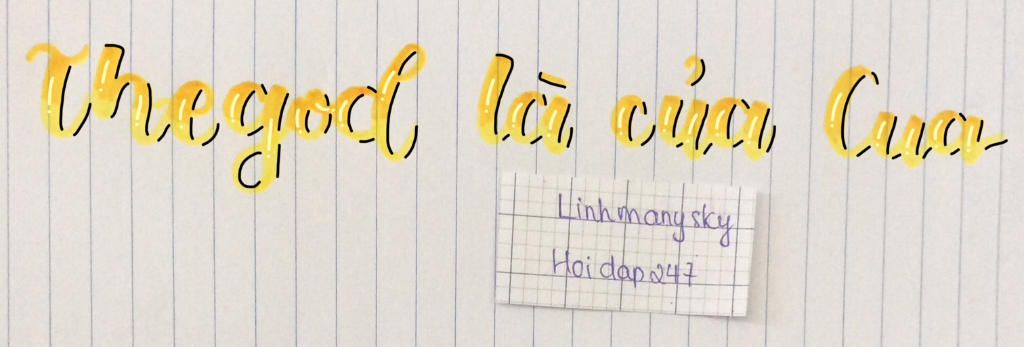 Thegod là của Cua
Linhmanysky
Hoidap247